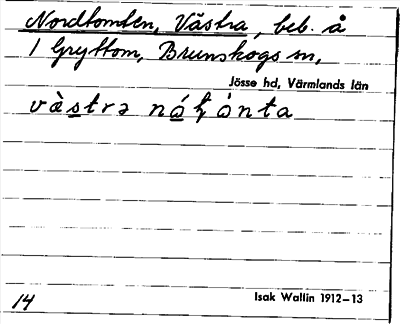 Nordtomten, Västra, beb. å
1 Gryttom, Brunskogs sn,
Jösse hd, Värmlands län
14
Isak Wallin 1912–13